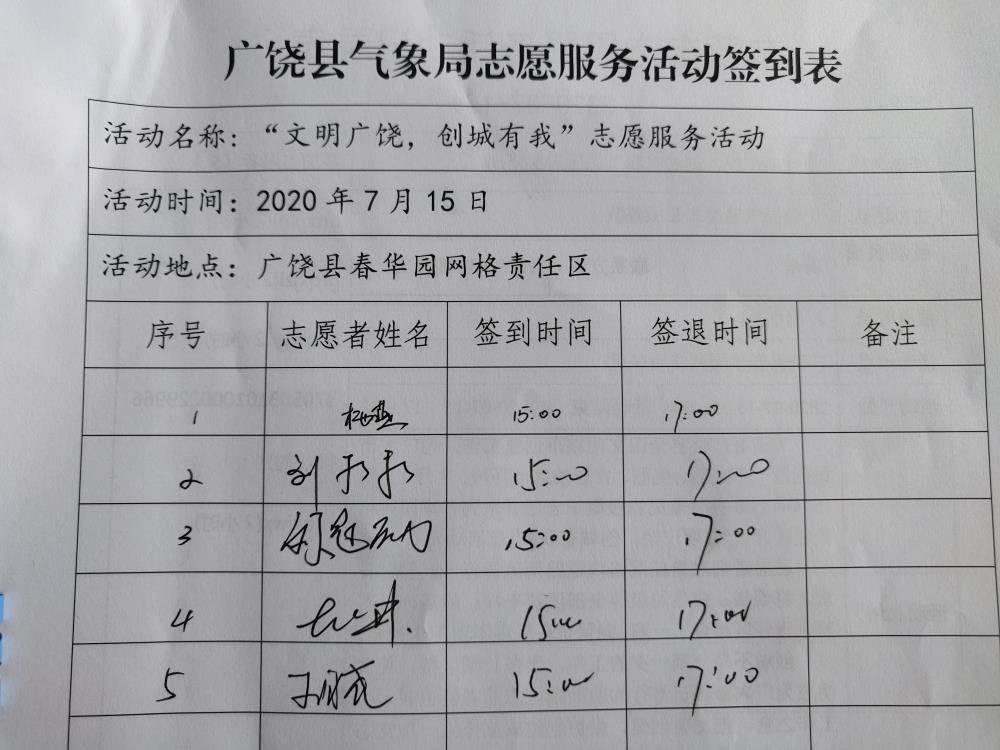 广饶县气象局志愿服务活动签到表
活动名称：“文明广饶，创城有我”志愿服务活动
活动时间：2020 年 7 月 15 日
活动地点：广饶县春华园网格责任区
序号 志愿者姓名 签到时间 签退时间 备注
1 15:00 17:00
2 15:00 17:00
3 15:00 17:00
4 15:00 17:00
5 15:00 17:00